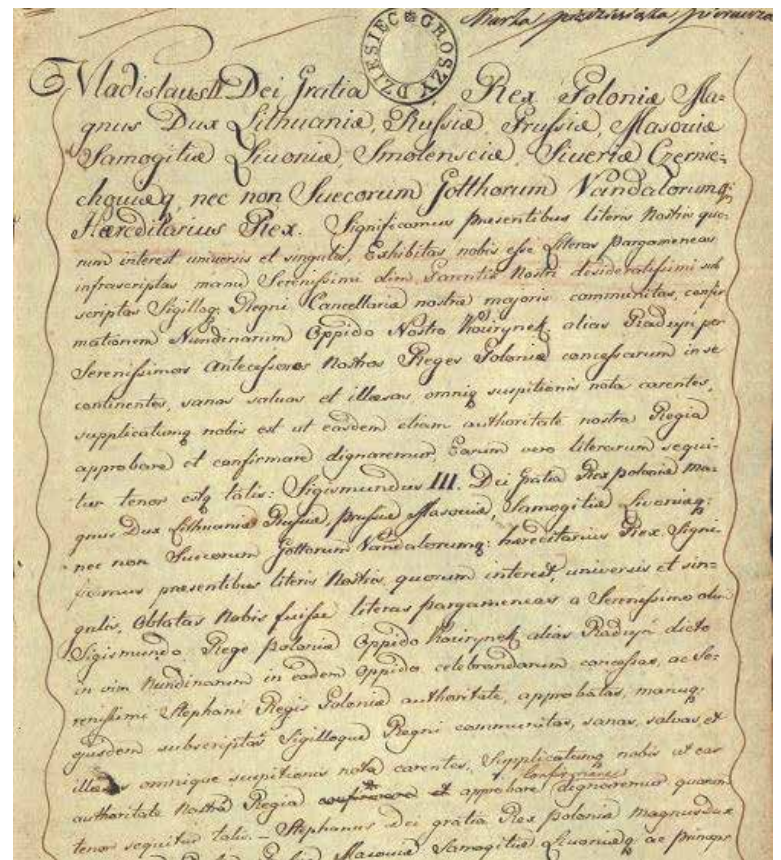 Marka piędziesiąta pierwsza
DZIESIEC GROSZY
Vladislaus Dei Gratia Rex Poloniæ Ma-
gnus Dux Lithuaniæ, Russiæ, Prussiæ, Masoviæ
Samogitiæ Livoniæ, Smolensciæ, Siveriæ Czernie-
choviæq, nec non Suecorum Gotthorum Vandalorumq;
Hæreditarius Rex. Significamus præsentibus literis Nostris quo-
rum interest universis et singulis, Exhibitas nobis esse Literas pargameneas
infrascriptas manu Serenissimi olim Parentis Nostri desideratissimi sub
scriptas Sigilloq; Regni Cancellariæ nostræ majoris communitas, confir
mationem Nundinarum Oppido Nostro alias per
Serenissimos Antecessores Nostros Reges Poloniæ concessarum in se
continentes, sanas salvas et illæsas omniq suspitionis nota carentes,
supplicatumq nobis est ut easdem etiam authoritate nostra Regia
approbare et confirmare dignaremur Earum vero literarum sequi-
tur tenor estq talis: Sigismundus III. Dei Gratia Rex poloniæ Ma-
gnus Dux Lithuaniæ Russiæ, prussiæ Masoviæ, Samogitiæ Livoniæq;
nec non Suecorum Gottorum Vandalorumq; hæreditarius Rex. Signi-
ficamus præsentibus literis Nostris quorum interest, universis et sin-
gulis, Oblatas Nobis fuisse literas pargameneas a Serenissimo olim
Sigismundo Rege poloniæ Oppido alias dicto
in vim Nundinarum in eodem Oppido celebrandarum concessas, ac Se-
renissimi Stephani Regis Poloniæ authoritate, approbatas, manuq;
ejusdem subscriptas Sigilloque Regni communitas, sanas, salvas et
illæsas omnique suspitionis nota carentes, Supplicatumq nobis ut eas
authoritate Nostra Regia confirmare et approbare et confirmare dignaremur quarum
tenor sequitur talis. – Stephanus Dei gratia Rex poloniæ Magnus Dux
Masoviæ Samogitiæ Livoniæq ac princeps